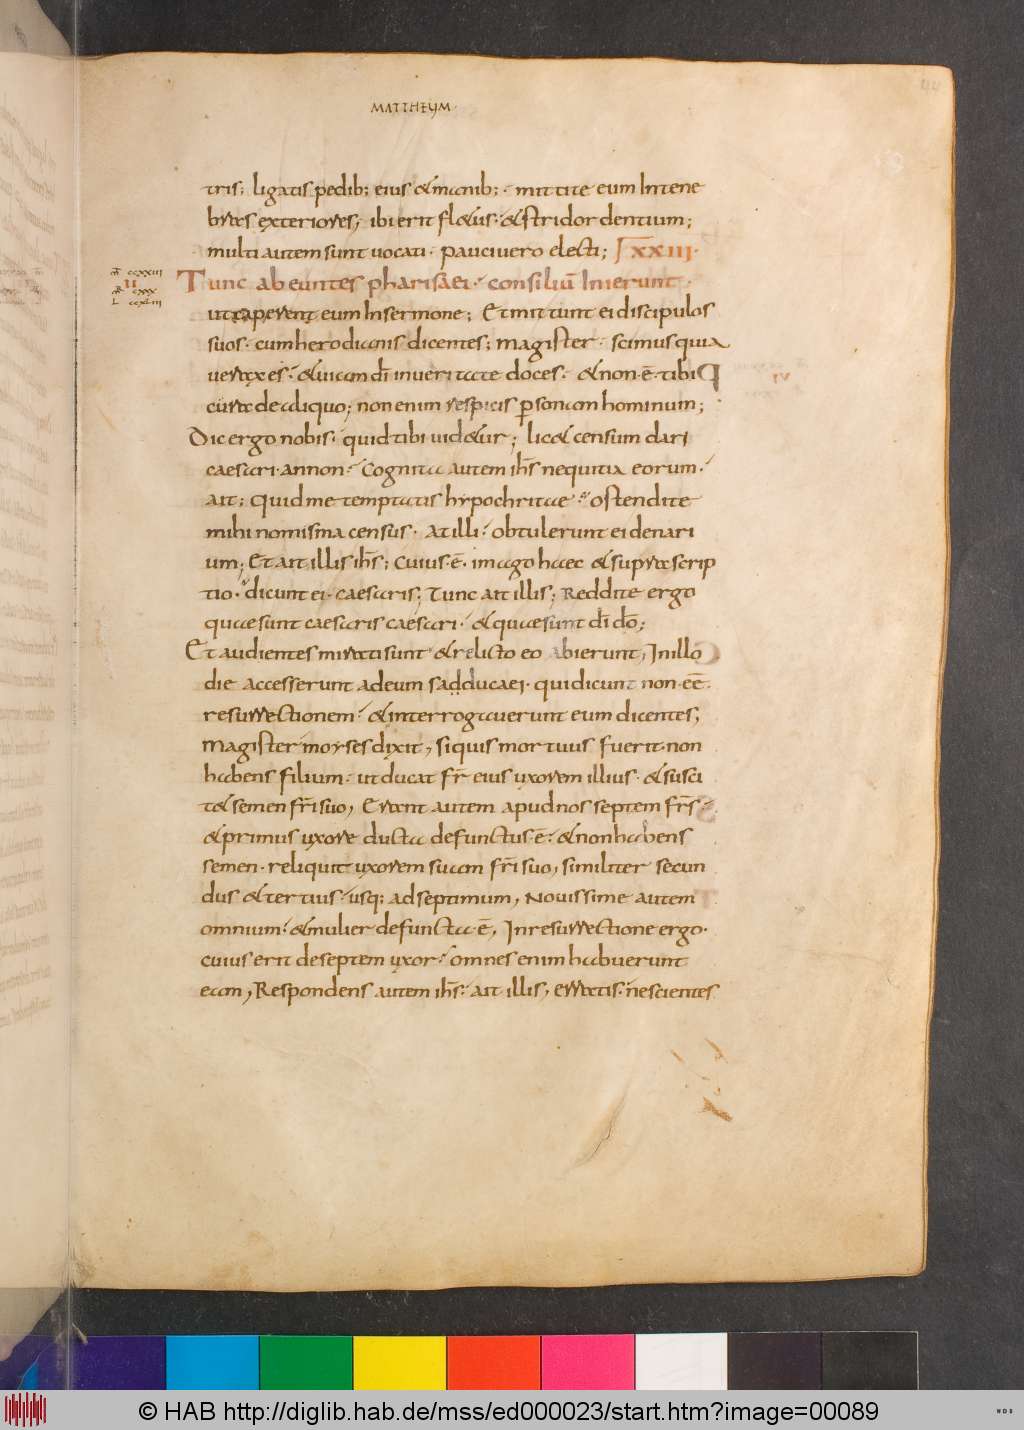 MATTHEUM
tris; ligatis pedib; eius & manib; mittite eum in tene
bras exteriores; ibi erit fletus & stridor dentium;
multi autem sunt uocati. pauci uero electi; LXXIII.
Tunc abeuntes pharisaei. consiliū inierunt
ut caperent eum in sermone; Et mittunt ei discipulos
suos. cum herodianis dicentes; magister. scimus quia
uerax es. & uiam dī in ueritate doces. & non. ē. tibi
cura de aliquo; non enim respicis psonam hominum;
Dic ergo nobis. quid tibi uid&ur; lic& censum dari
caesari. an non. Cognita autem ihs nequitia eorum.
ait; Quid me temptatis hypochritae. Ostendite
mihi nomisma census. At illi. obtulerunt ei denari
um; Et ait illis ihs; Cuius. ē. imago haec & suprascrip
tio. dicunt ei. caesaris; Tunc ait illis; Reddite ergo
quae sunt caesaris caesari. & quae sunt dī dō;
Et audientes mirati sunt & relicto eo abierunt, In illo
die accesserunt ad eum sadducaei. qui dicunt non eē.
resurrectionem. & interrogauerunt eum dicentes;
Magister moyses dixit, si quis mortuus fuerit non
habens filium. ut ducat fr eius uxorem illius. & susci
t& semen fri suo, Erant autem apud nos septem frs.
& primus uxore ducta defunctus. ē. & non habens
semen. reliquit uxorem suam fri suo, similiter secun
dus & tertius. usq; ad septimum, Nouissime autem
omnium. & mulier defuncta. ē, In resurrectione ergo.
cuius erit de septem uxor. omnes enim habuerunt
eam, Respondens autem ihs. ait illis, erratis. nescientes
ccxxiii
ii
cxxx
L ccxliii
© HAB http://diglib.hab.de/mss/ed000023/start.htm?image=00089